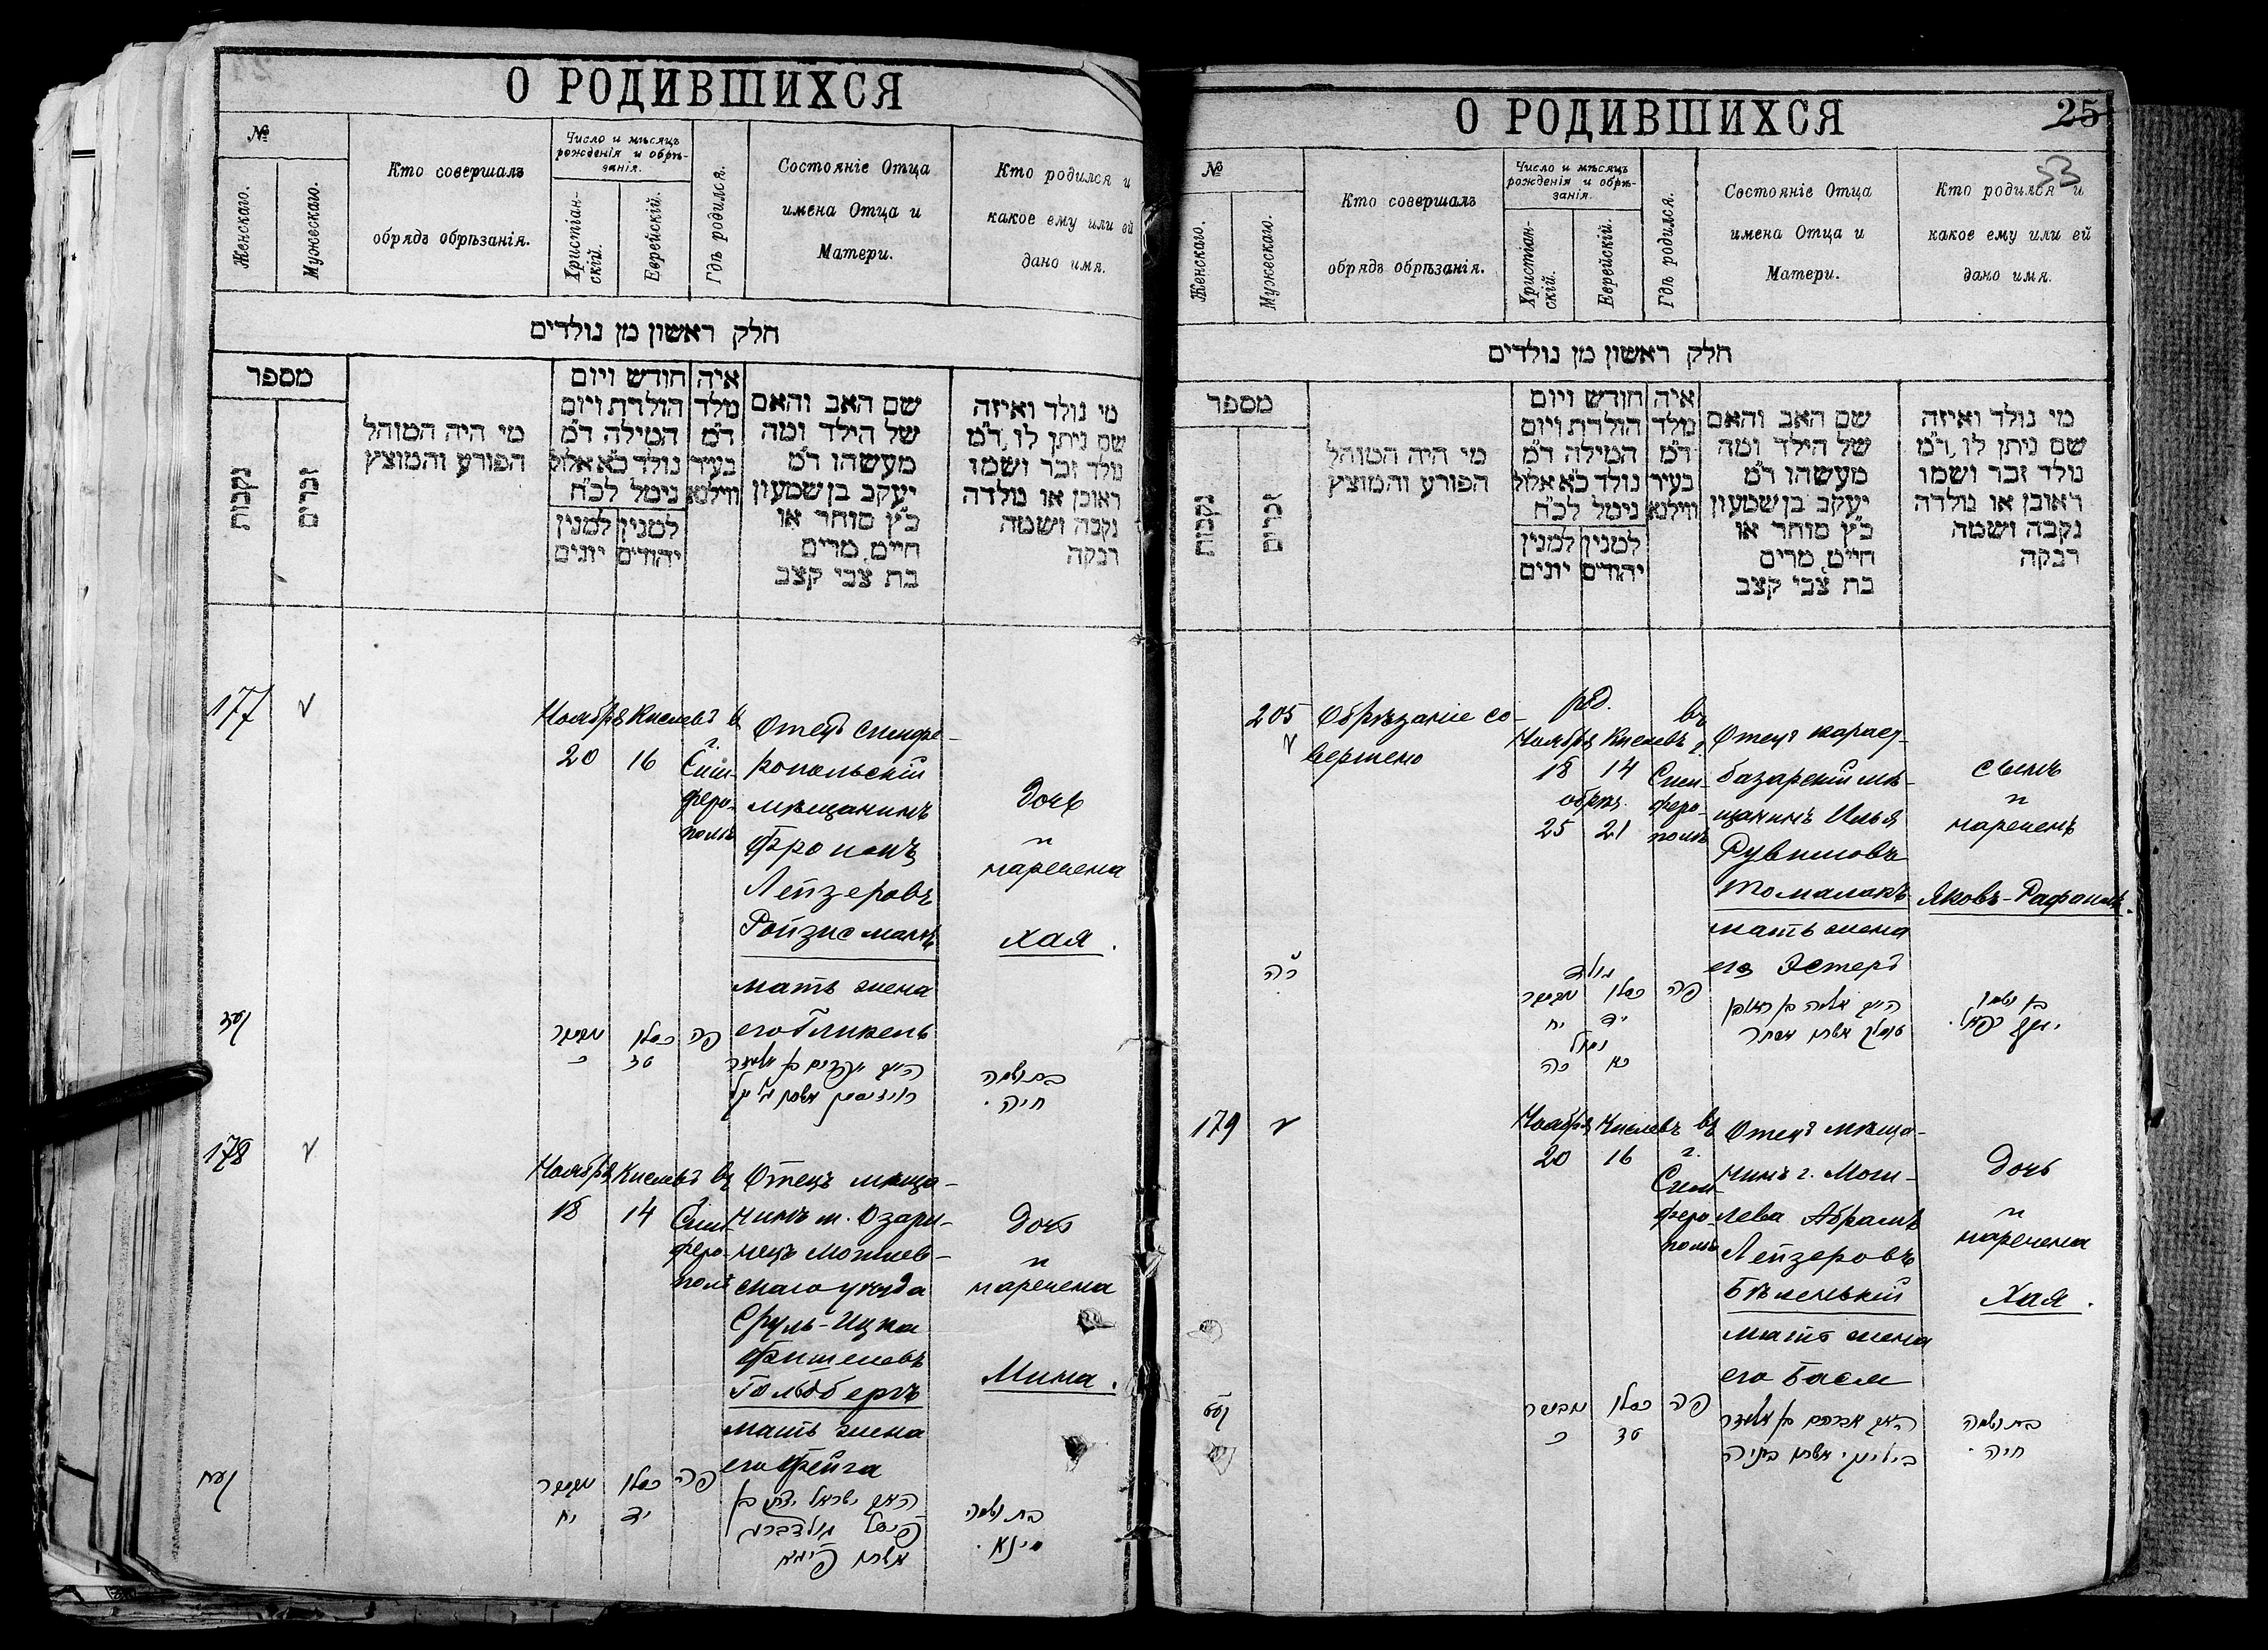 О РОДИВШИХСЯ
№
Женскаго.
Мужескаго.
Кто совершалъ
обрядъ обрѣзанія.
Число и мѣсяцъ
рожденія и обрѣ-
занія.
Христіан-
скій.
Еврейскій.
Гдѣ родился.
Состояніе Отца
имена Отца и
Матери.
Кто родился и
какое ему или ей
дано имя.
חלק ראשון מן נולדים
מספר
נקבות
זכרים
מי היה המוהל
הפורע והמוצץ
חודש ויום
הולדת ויום
המילה ד"מ
נולד כ"א אלול
נימל לכ"ח
למנין למנין
יהודים יונים
איה
נולד
ד"מ
בעיר
ווילנא
שם האב והאם
של הילד ומה
מעשהו ד"מ
יעקב בן שמעון
כ"ץ סוחר או
חיים מרים
בת צבי קצב
מי נולד ואיזה
שם ניתן לו, ד"מ
נולד זכר ושמו
ראובן או נולדה
נקבה ושמה
רבקה
177
Ноября Кислевъ в
20 16
г.
Сим-
феро-
полѣ
Отецъ симфе-
ропольскій
мѣщанинъ
Фроимъ
Лейзеровъ
Ройзисманъ
мать жена
его Гликель
Дочь
и
наречена
Хая.
קעז
כסלו
טז
כ
פה
בת ושמה
חיה.
178
Ноября Кислевъ въ
18 14
Сим-
феро-
полѣ
Отецъ мѣща-
нинъ м. Озари-
нецъ Могилев-
скаго уѣзда
Сруль-Ицка
Фишелевъ
Гольдбергъ
мать жена
его Фейга
Дочь
и
наречена
Мина.
קעח
כסלו
יד
יח
פה
האב ישראל יצחק בן
פישל גולדברג
אשתו פייגא
בת ושמה
מינא.
О РОДИВШИХСЯ
25
53
№
Женскаго.
Мужескаго.
Кто совершалъ
обрядъ обрѣзанія.
Число и мѣсяцъ
рожденія и обрѣ-
занія.
Христіан-
скій.
Еврейскій.
Гдѣ родился.
Состояніе Отца
имена Отца и
Матери.
Кто родился и
какое ему или ей
дано имя.
חלק ראשון מן נולדים
מספר
נקבות
זכרים
מי היה המוהל
הפורע והמוצץ
חודש ויום
הולדת ויום
המילה ד"מ
נולד כ"א אלול
נימל לכ"ח
למנין למנין
יהודים יונים
איה
נולד
ד"מ
בעיר
ווילנא
שם האב והאם
של הילד ומה
מעשהו ד"מ
יעקב בן שמעון
כ"ץ סוחר או
חיים מרים
בת צבי קצב
מי נולד ואיזה
שם ניתן לו, ד"מ
נולד זכר ושמו
ראובן או נולדה
נקבה ושמה
רבקה
205
Обрѣзаніе со-
вершено
рд.
Ноября Кислевъ
18 14
обрѣз.
25 21
въ
г.
Сим-
феро-
полѣ
Отецъ карасу-
базарскій мѣ-
щанинъ Илья
Рувиновъ
Томалакъ
мать жена
его Эстеръ
сынъ
и
нареченъ
Яковъ-Рафаилъ.
רה
נולד
כסלו
יד
יח
נימול
כא
כה
פה
האב אליהו בן ראובן
אשתו אסתר
בן ושמו
יעקב רפאל.
179
Ноября Кислевъ въ
20 16
г.
Сим-
феро-
полѣ
Отецъ мѣща-
нинъ г. Моги-
лева Абрамъ
Лейзеровъ
Бѣленькій
мать жена
его Бася
Дочь
и
наречена
Хая.
קעט
כסלו
טז
כ
פה
האב אברהם בן אליעזר
אשתו בתיה
בת ושמה
חיה.